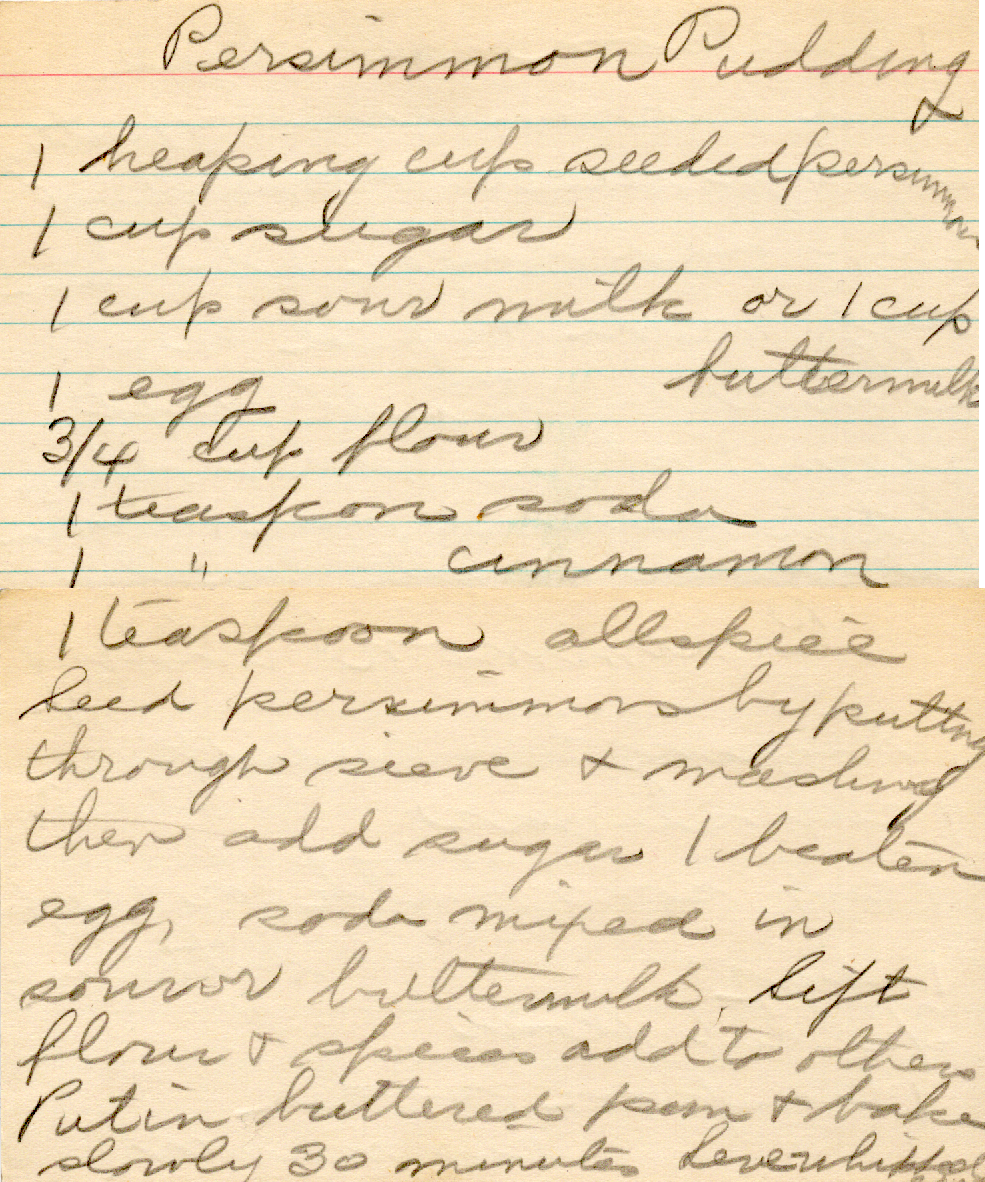 Persimmon Pudding
1 heaping cup seeded persimmon
1 cup sugar
1 cup sour milk or 1 cup
buttermilk
1 egg
3/4 cup flour
1 teaspon soda
1 " cinnamon
1 teaspoon allspice
Seed persimmons by putting
through sieve & mashing
then add sugar 1 beaten
egg, soda mixed in
sour or buttermilk. Sift
flour & spices add to others
Put in buttered pan & bake
slowly 30 minutes Serve whipped